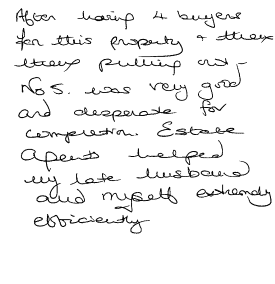 After having 4 buyers
for this property + then
them pulling out -
No 5. was very good
and desperate for
completion. Estate
Agents helped
my late husband
and myself extremely
efficiently